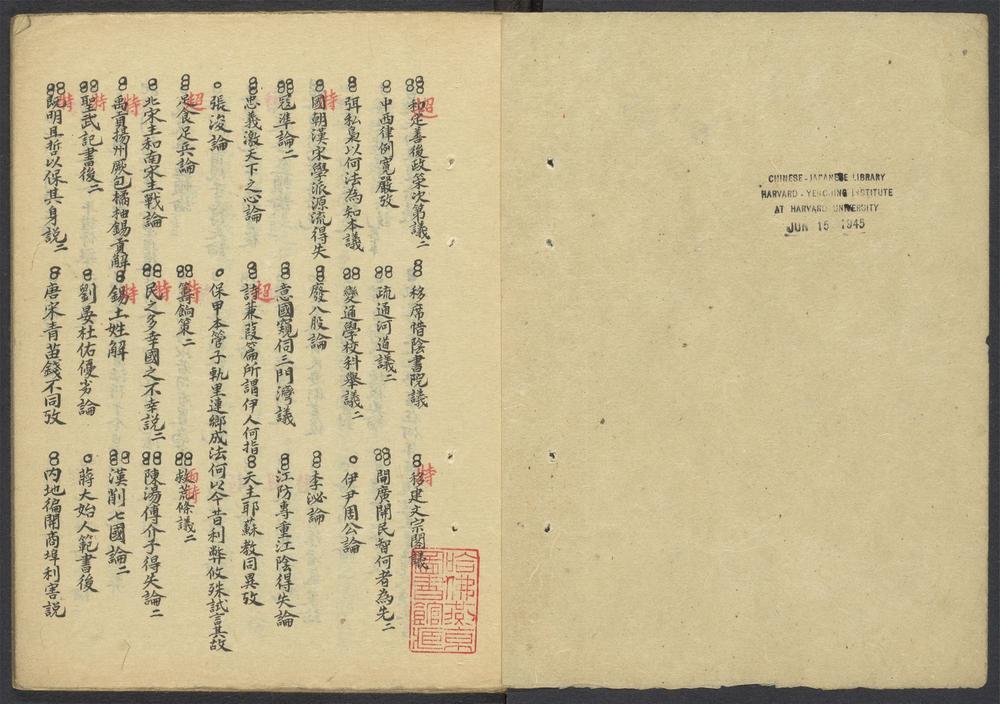 CHINESE-JAPANESE LIBRARY
HARVARD-YENCHING INSTITUTE
AT HARVARD UNIVERSITY
JUN 15 1945
和定善後政策次第議二
移席惜陰書院議
移建文宗閣議
中西律例寬嚴攷
疏通河道議二
開廣開民智何者為先二
弭私梟以何法為知本議
變通學校科舉議二
伊尹周公論
國朝漢宋學派源流得失
廢八股論
李泌論
寇準論二
意國窺伺三門灣議
江防專重江陰得失論
忠義激天下之心論
詩蒹葭篇所謂伊人何指
天主耶蘇教同異攷
張浚論
保甲本管子軌里連鄉成法何以今昔利弊攸殊試言其故
足食足兵論
籌餉策二
救荒條議二
北宋主和南宋主戰論
民之多幸國之不幸説二
陳湯傅介子得失論二
禹貢揚州厥包橘柚錫貢解
錫土姓解
漢削七國論二
聖武記書後二
劉晏杜佑優劣論
蔣大始人範書後
既明且哲以保其身説二
唐宋青苗錢不同攷
內地徧開商埠利害説
超
特
特
特
超
超
特
特
特
特
特
特
哈佛燕京圖書館藏